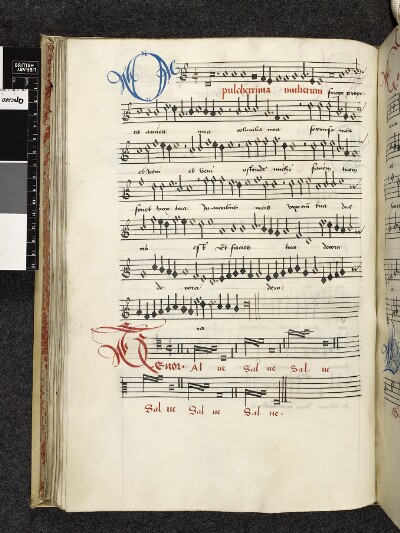 O
pulcherrima mulierum surge prope
ra amica mea columba mea formosa mea
et veni et veni ostende michi faciem tuam
sonet vox tua in auribus meis vox em tua dul
cis est Et facies tua decora
de cora deco
ra
Tenor Al ue Sal ue Sal ue
Sal ue Sal ue Sal ue